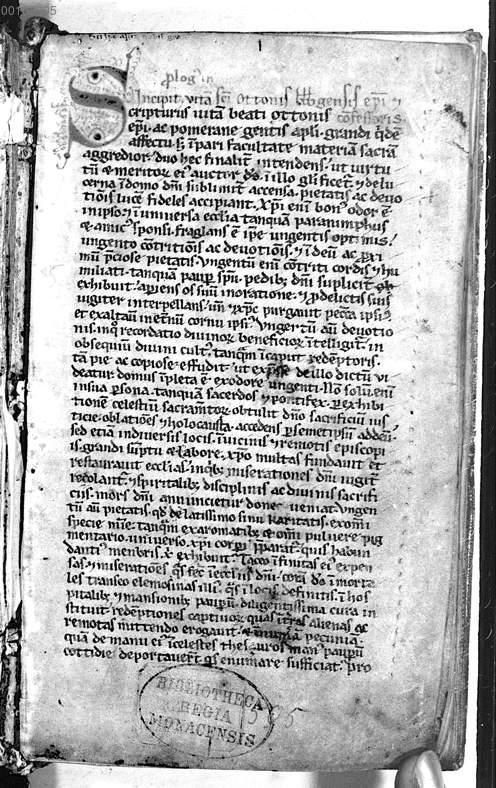 1
plog' in
Incipit vita sci Ottonis bbgensis epi ⁊
cripturis vitã beati ottonis confessoris.
epi. ac pomerane gentis apli. grandi qdē
affectu. s; ipari facultate materiã sacrã
aggredior. duo hec finalit intendens. ut virtu
tũ ⁊ meritor ei' auctor ds. i illo glificet. ⁊ delu
cerna i domo dni sublimit accensa. pietatis ac devo
tiõis lucē fideles accipiant. Xpi eni bon' odor ē
in ipso. ⁊ i universa ecclia tanquã paranimphus
⁊ amic' sponsi. fraglans ē ipe ungentis optimis.
ungento cõtritiõis ac devotiõis. ⁊ ideũ ac pxi
mũ pciose pietatis. Ungentũ eni cõtriti cordis ⁊ hu
miliati. tanquã paup spu. pedib; dni suplicit
exhibuit. apiens os suũ inoratione. ⁊ p delictis suis
iugiter interpellans. un ⁊ xpc purgavit pecca ipsi'.
et exaltavi inetnũ cornu ipsi'. Ungentũ aũ devotio
nis. inq recordatio divinor beneficior itelligit. in
obsequiũ divini cult'. tanqm i caput redēptoris.
tã pie ac copiose effudit. ut expsse de illo dictũ vi
deatur. domus ipleta ē exodore ungenti. Nõ solũ eni
insua psona. tanquã sacerdos ⁊ pontifex. p exhibi
tionē celestiũ sacramtor obtulit dno sacrificiũ ius
ticie. oblatiões ⁊ holocausta. accedens p semetipsũ addeũ.
sed etiã indiversis locis. i vicinis ⁊ remotis episcopi
is. grandi sũptu ⁊ labore. xpo multas fundavit et
restauravit ecclias. inqb; miserationes dni iugit
recolant. ⁊ spiritalib; disciplinis ac divinis sacrifi
ciis. mors dni annuncietur donec veniat. Ungen
tũ aũ pietatis. qd de latissimo sinu karitatis. ex omni
specie mie. tanqm exaromatib; ⁊ omni pulvere pig
mentario. universo xpi corpi pparat. quis habun
danti' menbris. x exhibuit. Taceo ifinitas ei' expen
sas. ⁊ miserationes qs fec iecclis dni. corã do imorta
les transeo elemosinas illi'. qs i locis definitis. i hos
pitalib; ⁊ mansionib; paupũ. diligentissima cura in
stituit. redēptionē captivor. quas itras alienas ac
remotas mittendo erogavit. pecunia.
quã de manu ei' icelestes thesauros man' paupũ
cottidie deportaverũt. qs enumare sufficiat. Pro
BIBLIOTHECA
REGIA
MONACENSIS